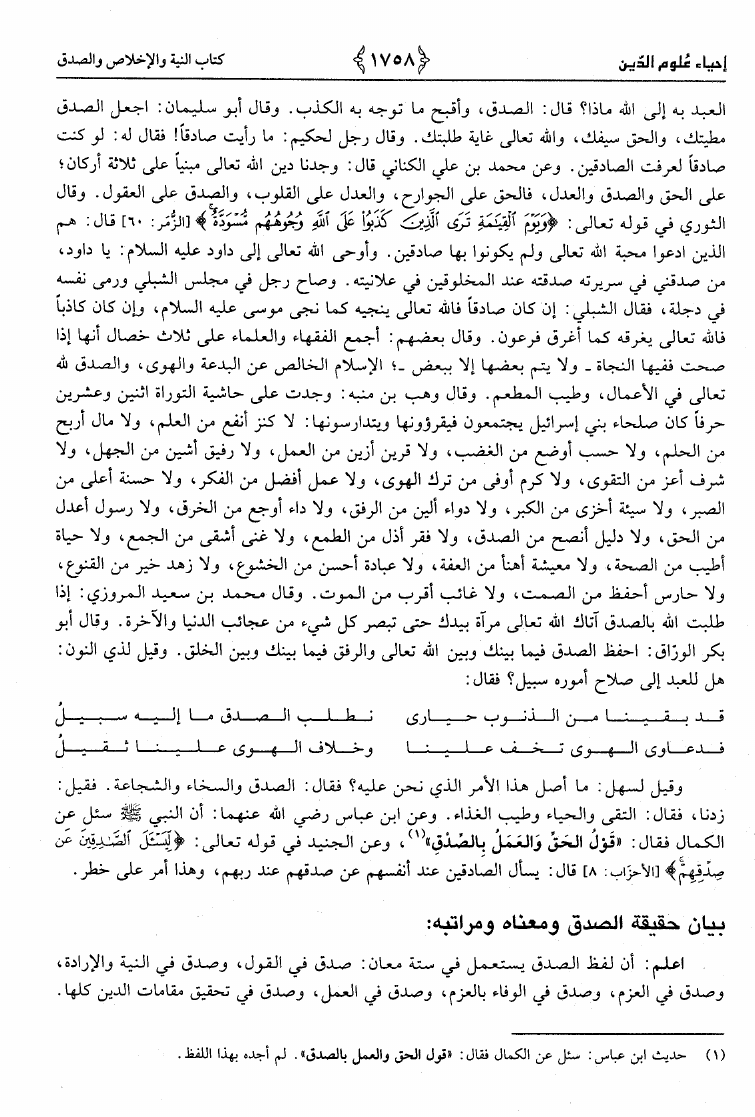 إحياء عُلوم الدّين ﴿١٧٥٨﴾ كتاب النية والإخلاص والصدق
العبد به إلى الله ماذا؟ قال: الصدق، وأقبح ما توجه به الكذب. وقال أبو سليمان: اجعل الصدق
مطيتك، والحق سيفك، والله تعالى غاية طلبتك. وقال رجل لحكيم: ما رأيت صادقاً! فقال له: لو كنت
صادقاً لعرفت الصادقين. وعن محمد بن علي الكناني قال: وجدنا دين الله تعالى مبنياً على ثلاثة أركان؛
على الحق والصدق والعدل، فالحق على الجوارح، والعدل على القلوب، والصدق على العقول. وقال
الثوري في قوله تعالى: ﴿وَيَوْمَ ٱلْقِيَٰمَةِ تَرَى ٱلَّذِينَ كَذَبُوا۟ عَلَى ٱللَّهِ وُجُوهُهُم مُّسْوَدَّةٌ﴾ [الزُّمَر: ٦٠] قال: هم
الذين ادعوا محبة الله تعالى ولم يكونوا بها صادقين. وأوحى الله تعالى إلى داود عليه السلام: يا داود،
من صدقني في سريرته صدقته عند المخلوقين في علانيته. وصاح رجل في مجلس الشبلي ورمى نفسه
في دجلة، فقال الشبلي: إن كان صادقاً فالله تعالى ينجيه كما نجى موسى عليه السلام، وإن كان كاذباً
فالله تعالى يغرقه كما أغرق فرعون. وقال بعضهم: أجمع الفقهاء والعلماء على ثلاث خصال أنها إذا
صحت ففيها النجاة ـ ولا يتم بعضها إلا ببعض ـ؛ الإسلام الخالص عن البدعة والهوى، والصدق لله
تعالى في الأعمال، وطيب المطعم. وقال وهب بن منبه: وجدت على حاشية التوراة اثنين وعشرين
حرفاً كان صلحاء بني إسرائيل يجتمعون فيقرؤونها ويتدارسونها: لا كنز أنفع من العلم، ولا مال أربح
من الحلم، ولا حسب أوضع من الغضب، ولا قرين أزين من العمل، ولا رفيق أشين من الجهل، ولا
شرف أعز من التقوى، ولا كرم أوفى من ترك الهوى، ولا عمل أفضل من الفكر، ولا حسنة أعلى من
الصبر، ولا سيئة أخزى من الكبر، ولا دواء ألين من الرفق، ولا داء أوجع من الخرق، ولا رسول أعدل
من الحق، ولا دليل أنصح من الصدق، ولا فقر أذل من الطمع، ولا غنى أشقى من الجمع، ولا حياة
أطيب من الصحة، ولا معيشة أهنأ من العفة، ولا عبادة أحسن من الخشوع، ولا زهد خير من القنوع،
ولا حارس أحفظ من الصمت، ولا غائب أقرب من الموت. وقال محمد بن سعيد المروزي: إذا
طلبت الله بالصدق آتاك الله تعالى مرآة بيدك حتى تبصر كل شيء من عجائب الدنيا والآخرة. وقال أبو
بكر الوزاق: احفظ الصدق فيما بينك وبين الله تعالى والرفق فيما بينك وبين الخلق. وقيل لذي النون:
هل للعبد إلى صلاح أموره سبيل؟ فقال:
قد بقينا من الذنوب حيارى نطلب الصدق ما إليه سبيلُ
فدعاوى الهوى تخف علينا وخلاف الهوى علينا ثقيلُ
وقيل لسهل: ما أصل هذا الأمر الذي نحن عليه؟ فقال: الصدق والسخاء والشجاعة. فقيل:
زدنا، فقال: التقى والحياء وطيب الغذاء. وعن ابن عباس رضي الله عنهما: أن النبي ﷺ سئل عن
الكمال فقال: «قَوْلُ الحَقِّ وَالعَمَلُ بِالصِّدْقِ»(١)، وعن الجنيد في قوله تعالى: ﴿لِّيَسْـَٔلَ ٱلصَّٰدِقِينَ عَن
صِدْقِهِمْ﴾ [الأحزَاب: ٨] قال: يسأل الصادقين عند أنفسهم عن صدقهم عند ربهم، وهذا أمر على خطر.
بيان حقيقة الصدق ومعناه ومراتبه:
اعلم: أن لفظ الصدق يستعمل في ستة معان: صدق في القول، وصدق في النية والإرادة،
وصدق في العزم، وصدق في الوفاء بالعزم، وصدق في العمل، وصدق في تحقيق مقامات الدين كلها.
(١) حديث ابن عباس: سئل عن الكمال فقال: «قول الحق والعمل بالصدق». لم أجده بهذا اللفظ.